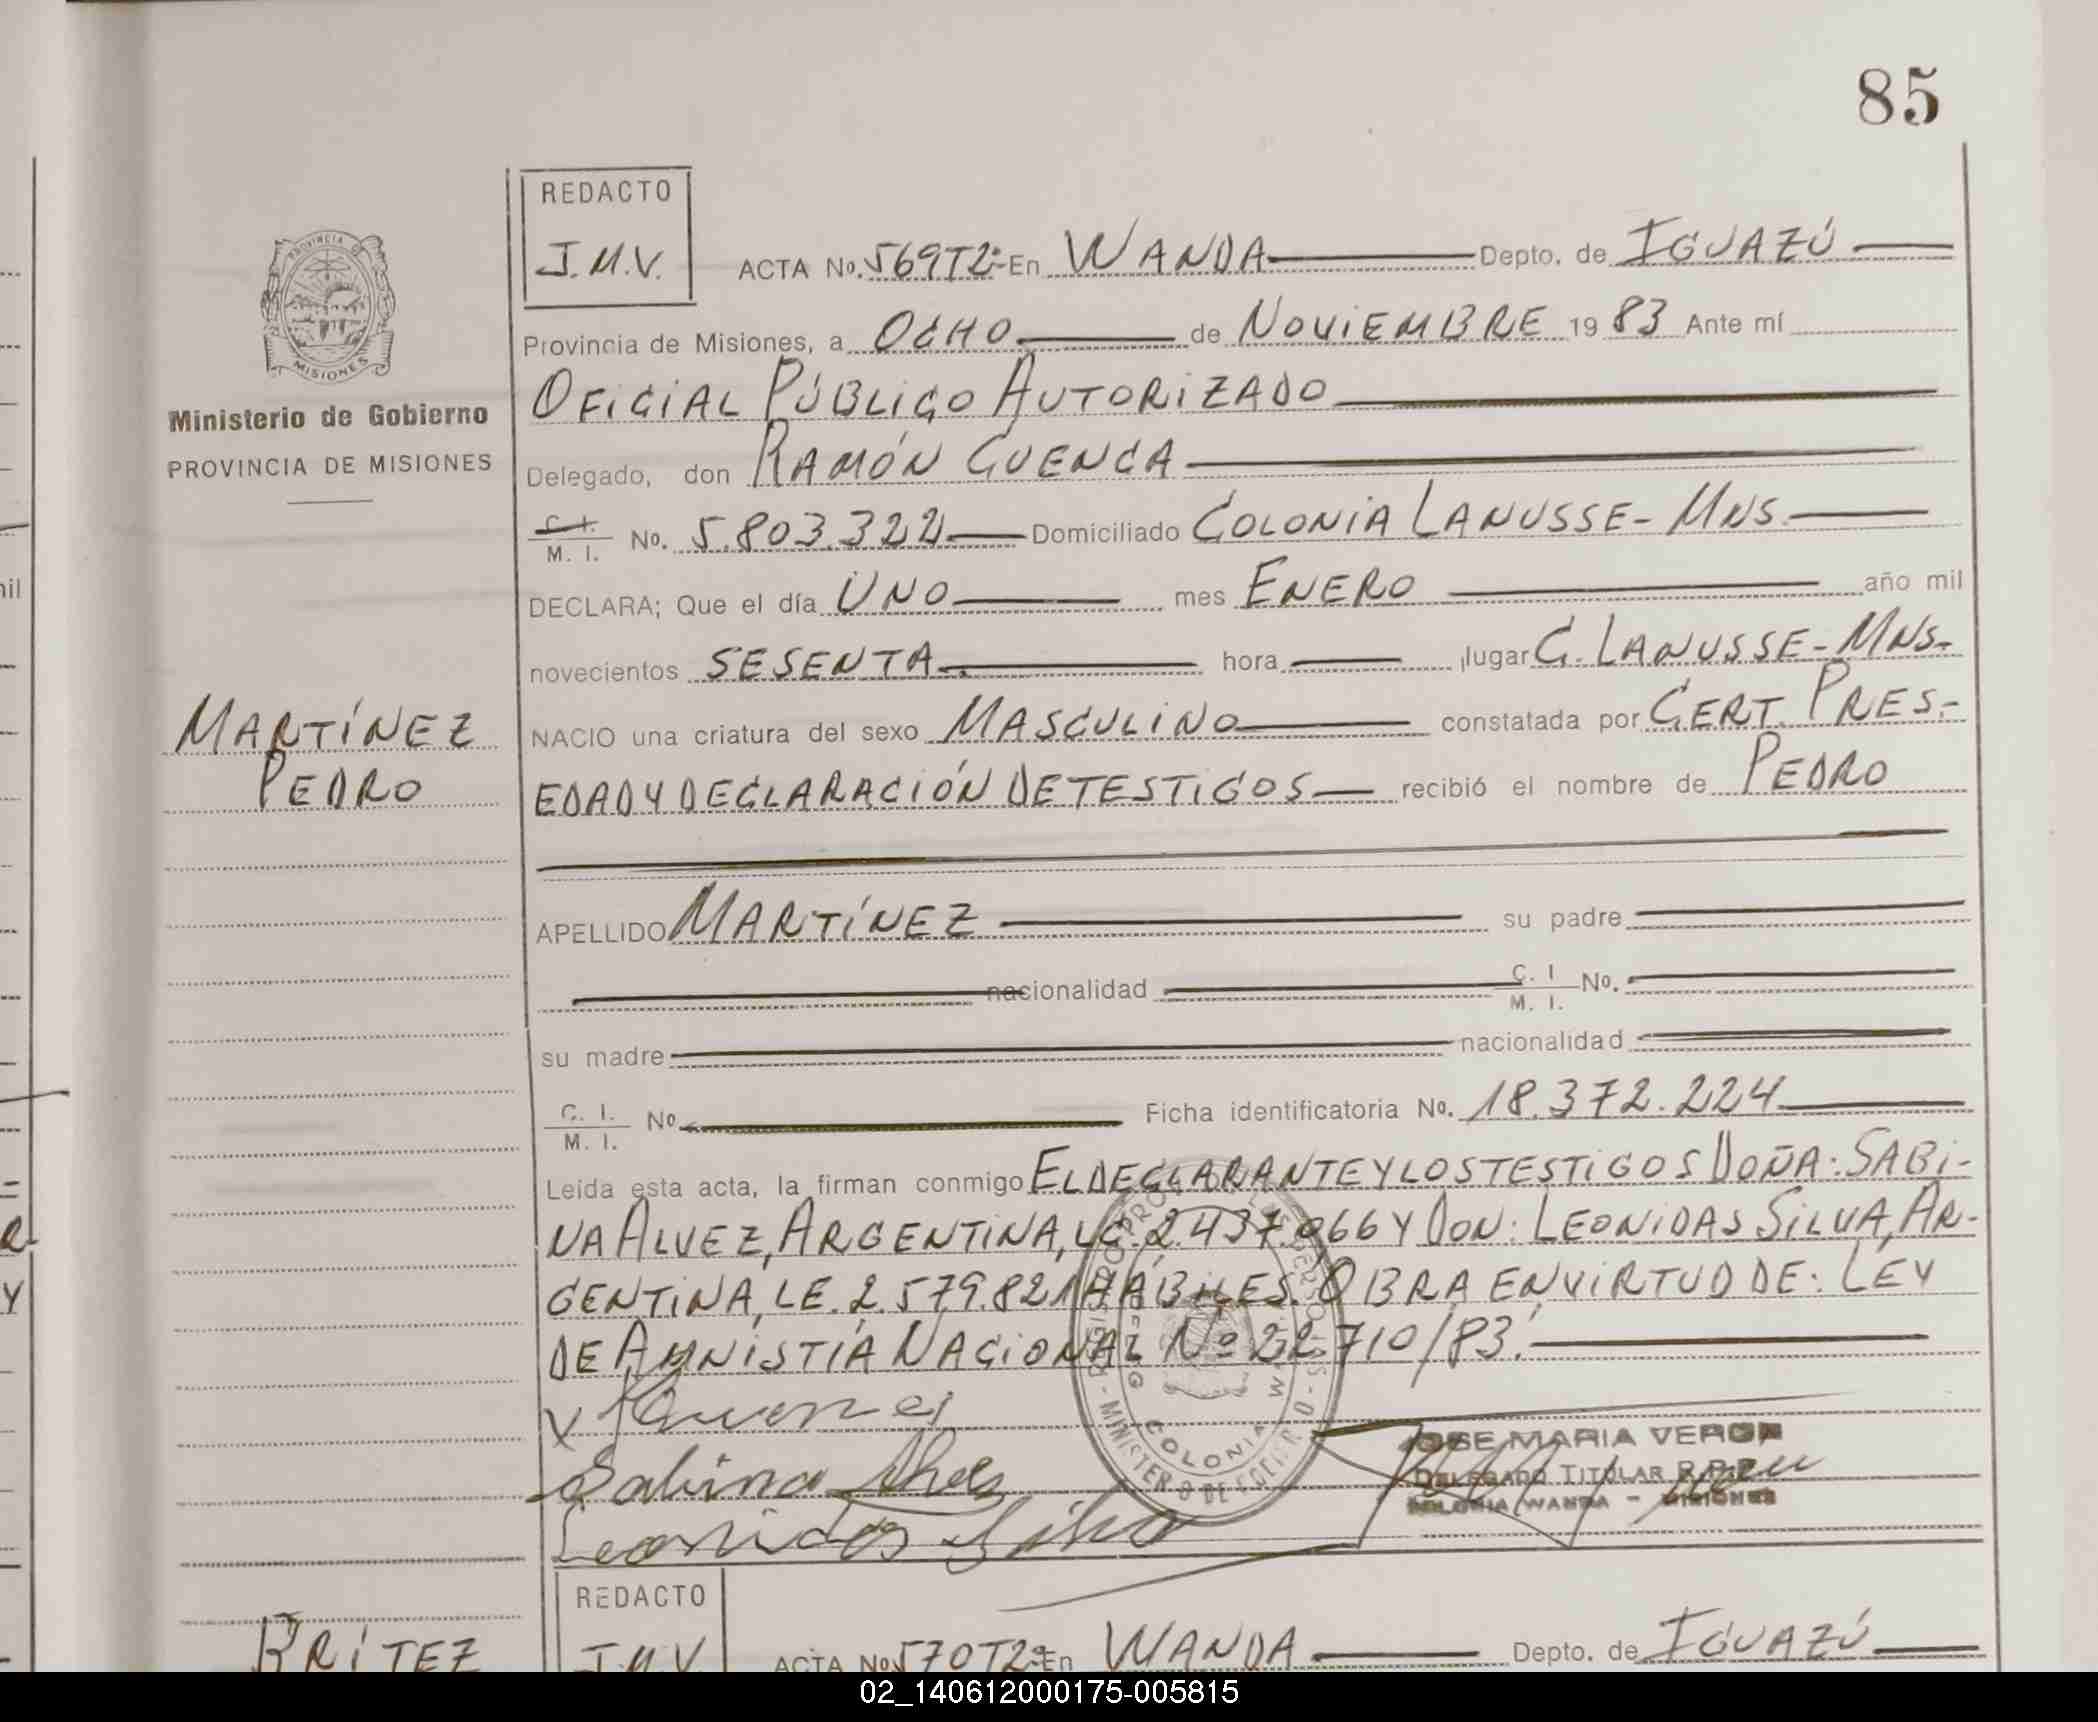 85
REDACTO
J.M.V.
ACTA No. 569T2:- En WANDA Depto. de IGUAZÚ
PROVINCIA DE
MISIONES
Provincia de Misiones, a OCHO de NOVIEMBRE 19 83 Ante mí
OFICIAL PÚBLICO AUTORIZADO
Ministerio de Gobierno
PROVINCIA DE MISIONES
Delegado, don RAMÓN CUENCA
C. I.
M. I. No. 5.803.322 Domiciliado COLONIA LANUSSE-MNS.
DECLARA; Que el día UNO mes ENERO año mil
novecientos SESENTA hora lugar C. LANUSSE-MNS-
MARTÍNEZ
PEDRO
NACIO una criatura del sexo MASCULINO constatada por CERT. PRES-
EDAD Y DECLARACIÓN DE TESTIGOS recibió el nombre de PEDRO
APELLIDO MARTÍNEZ su padre
nacionalidad C. I. M. I. No.
su madre nacionalidad
C. I. M. I. No. Ficha identificatoria No. 18.372.224
Leída esta acta, la firman conmigo EL DECLARANTE Y LOS TESTIGOS DOÑA: SABI-
NA ALVEZ, ARGENTINA, LC. 2.437.066 Y DON: LEONIDAS SILVA, AR-
GENTINA, LE. 2.579.821 HÁBILES. OBRA EN VIRTUD DE: LEY
DE AMNISTÍA NACIONAL Nº 22.710/83.
Sabina Alves
Leonidas Silva
COLONIA
MINISTERIO DE
JOSE MARIA VERON
DELEGADO TITULAR R.P.P.
COLONIA WANDA - MISIONES
REDACTO
J.M.V.
BRÍTEZ
ACTA No. 570T2:- En WANDA Depto. de IGUAZÚ
02_140612000175-005815